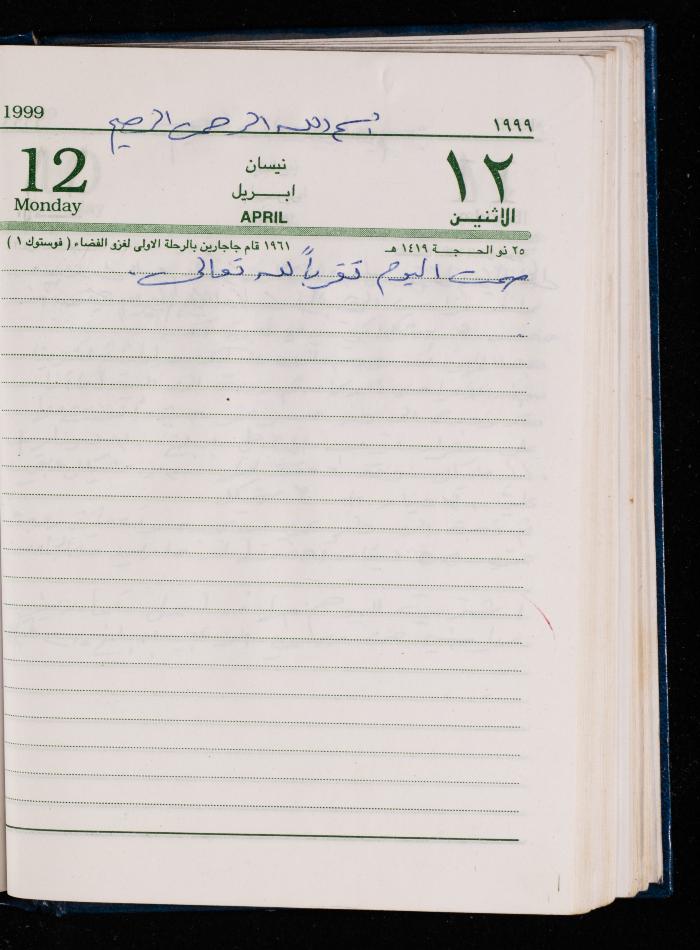 1999
بسم الله الرحمن الرحيم
١٩٩٩
12
Monday
نيسان
ابــريل
APRIL
١٢
الاثنين
٢٥ ذو الحـــجــــة ١٤١٩ هـ
١٩٦١ قام جاجارين بالرحلة الاولى لغزو الفضاء ( فوستوك ١ )
صمت اليوم تقرباً لله تعالى .